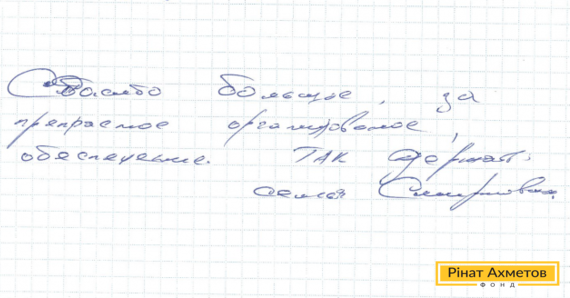 Спасибо большое, за
прекрасное организованое,
обеспечение. ТАК держать.
семья Смирновых.
Рінат Ахметов
ФОНД